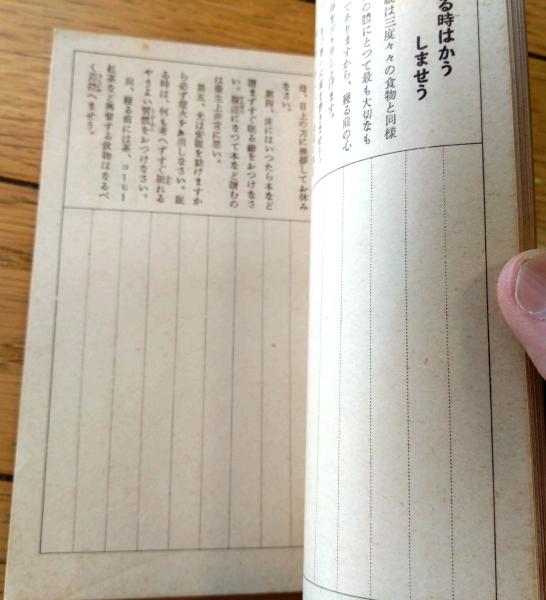 る時はかう
しませう
眠は三度々々の食物と同様
の體にとつて最も大切なも
でありますから、寢る前の心
申し上げます。
母、目上の方に挨拶してお休み
なさい。
第四、床にはいつたら本など
讀まずすぐ眠る癖をおつけなさ
い。腹這になつて本など讀むの
は衞生上非常に惡い。
第五、光は安眠を妨げますか
ら必ず燈火をお消しなさい。眠
る時は、何も考へずすぐ眠れる
やうよい習慣をおつけなさい。
尙、寢る前には茶、コーヒー
紅茶など興奮する飮物はなるべ
く差控へませう。